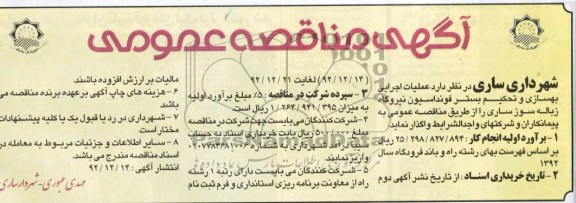 آگهی مناقصه عمومی
شهرداری ساری در نظر دارد عملیات اجرایی
بهسازی و تحکیم بستر فونداسیون نیروگاه
زباله سوز ساری را از طریق مناقصه عمومی به
پیمانکاران و شرکتهای واجدالشرایط واگذار نماید.
۱- برآورد اولیه انجام کار : ۲۵/۲۹۸/۸۲۷/۸۹۴ ریال
بر اساس فهرست بهای رشته راه و باند فرودگاه سال
۱۳۹۲
۲- تاریخ خریداری اسناد : از تاریخ نشر آگهی دوم
(۹۲/۱۲/۱۴) لغایت ۹۲/۱۲/۲۱
۳- سپرده شرکت در مناقصه : ۵٪ مبلغ برآورد اولیه
به میزان ۱/۲۶۴/۹۴۱/۳۹۵ ریال است
۴- شرکت کنندگان می بایست جهت شرکت در مناقصه
مبلغ ۵۰۰/۰۰۰ ریال بابت خریداری اسناد به حساب
درآمد شهرداری به شماره
واریز نمایند.
۵- شرکت کنندگان می بایست دارای رتبه ۱ رشته
راه از معاونت برنامه ریزی استانداری و فرم ثبت نام
مالیات بر ارزش افزوده باشند.
۶- هزینه های چاپ آگهی بر عهده برنده مناقصه می
باشد.
۷- شهرداری در رد یا قبول یک یا کلیه پیشنهادات
مختار است.
۸- سایر اطلاعات و جزئیات مربوط به معامله در
اسناد مناقصه مندرج می باشد.
انتشار آگهی : ۹۲/۱۲/۱۴
مهدی عبوری - شهردار ساری